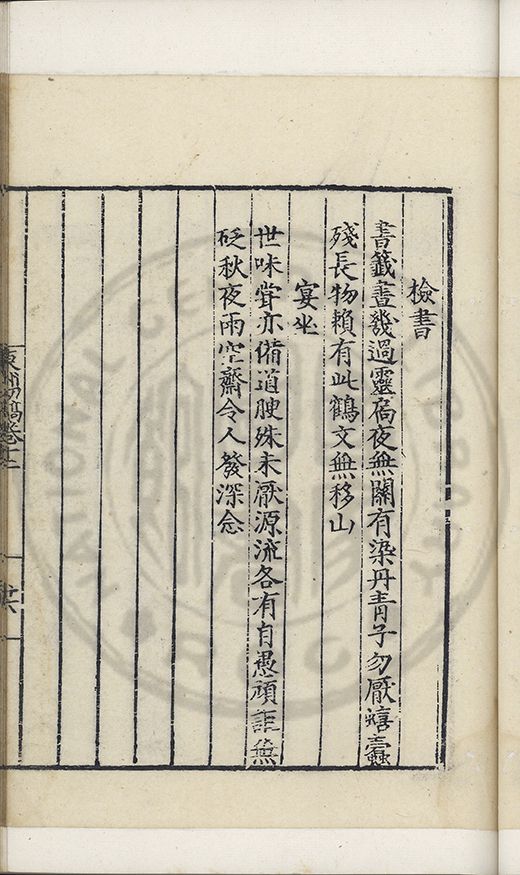 檢書
書籤晝幾過靈扃夜無關有染丹青子勿厭蠹
殘長物賴有此鶴文無移山
宴坐
世味嘗亦備道腴殊未厭源流各有自愚頑詎無
砭秋夜雨空齋令人發深念
初稿卷十二